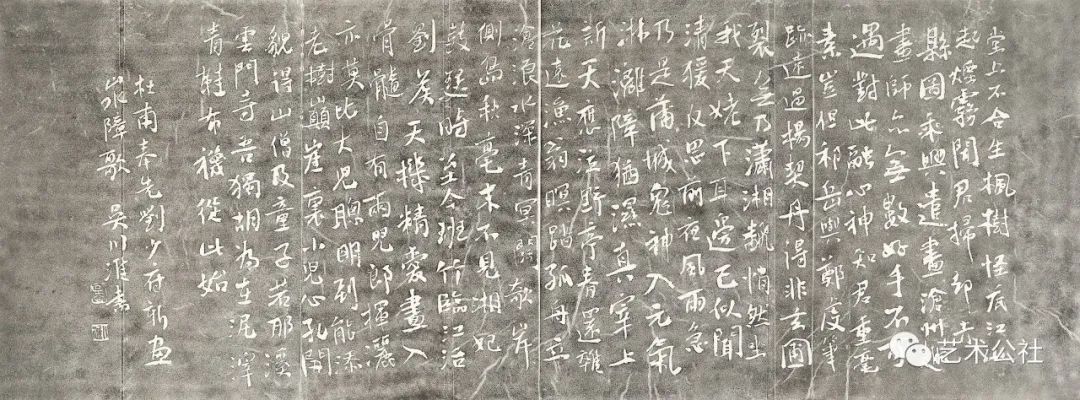 堂上不合生楓樹怪底江山
起煙霧聞君掃却赤
縣圖乘興遣畫滄州趣
畫師亦無數好手不可
遇對此融心神知君重毫
素豈但祁岳與鄭虔筆
跡遠過楊契丹得非玄圃
裂無乃瀟湘翻悄然坐
我天姥下耳邊已似聞
清猨反思前夜風雨急
乃是蒲城鬼神入元氣
淋灕障猶濕真宰上
訴天應泣野亭春還雜
花遠漁翁暝踏孤舟立
滄浪水深青冥闊欹岸
側島秋毫末不見湘妃
鼓瑟時至今班竹臨江活
劉侯天機精愛畫入
骨髓自有兩兒郎揮灑
亦莫比大兒聰明到能添
老樹巔崖裏小兒心孔開
貌得山僧及童子若耶溪
雲門寺吾獨胡為在泥滓
青鞋布襪從此始
杜甫奉先劉少府新畫
山水障歌 吳川淮書
艺术公社